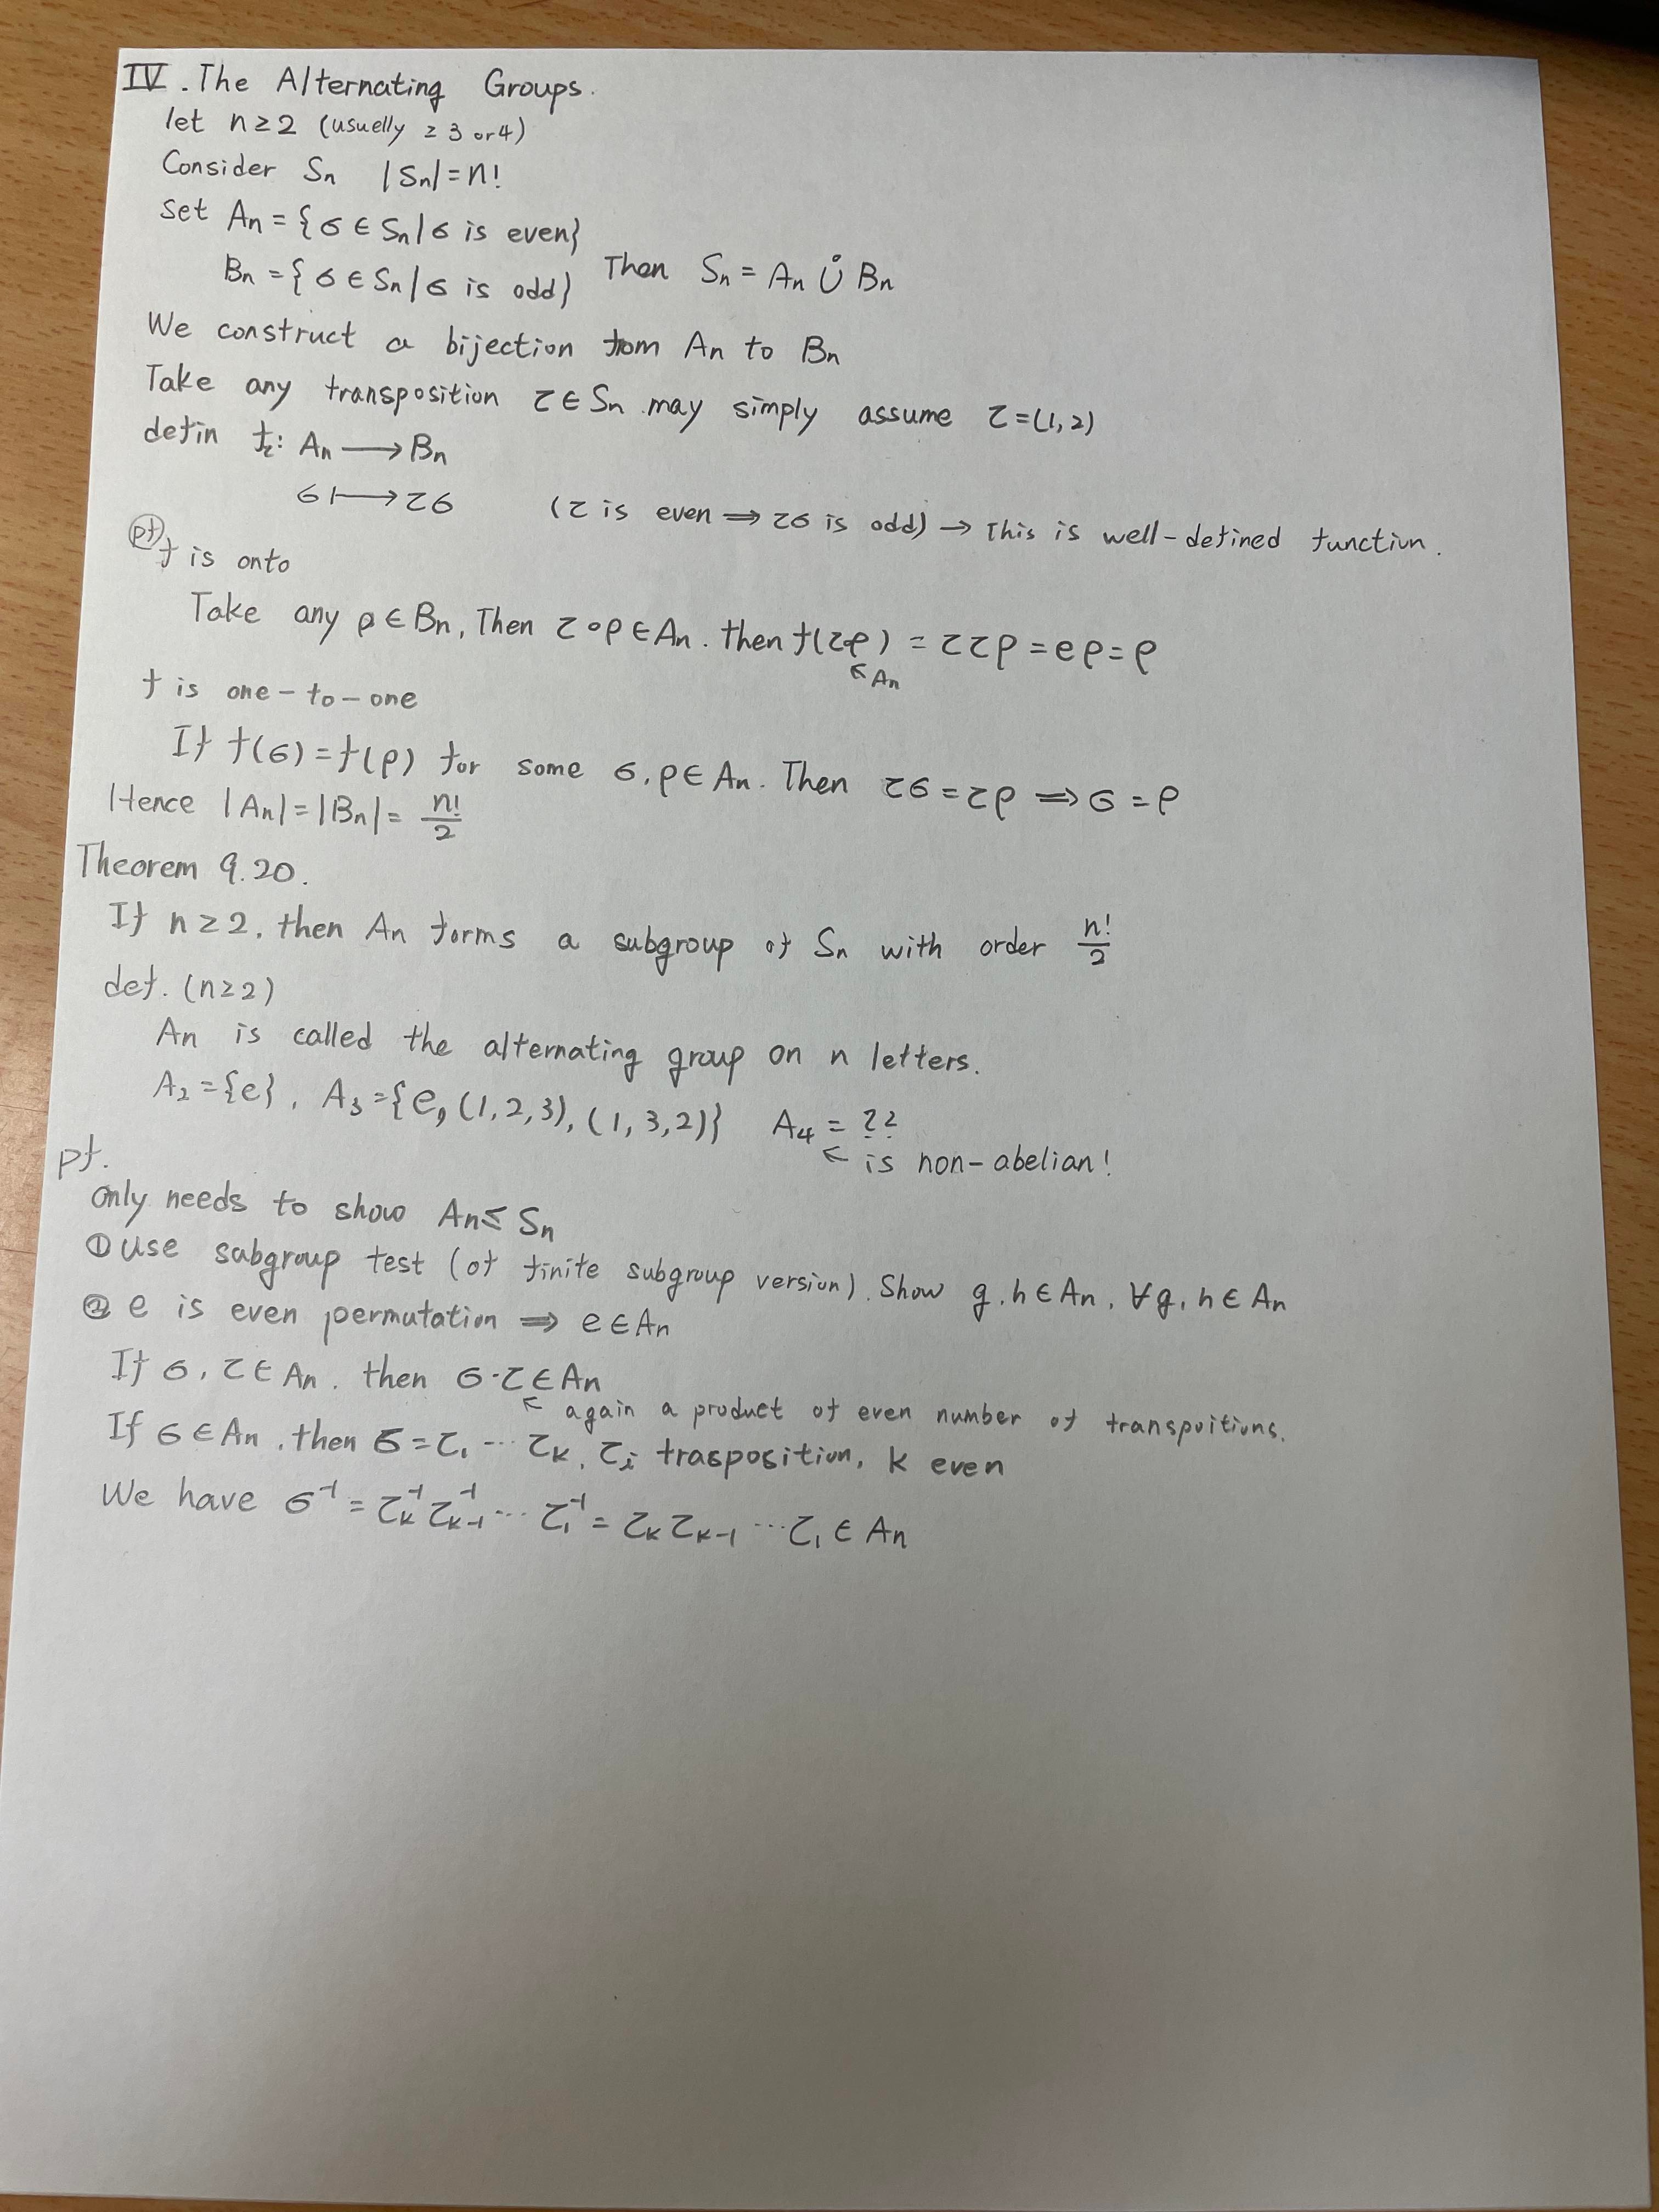 IV. The Alternating Groups.
let n≥2 (usuelly ≥ 3 or 4)
Consider Sn |Sn|=n!
Set An = {σ ∈ Sn | σ is even}
Bn = {σ ∈ Sn | σ is odd} Then Sn = An ∪̇ Bn
We construct a bijection from An to Bn
Take any transposition τ ∈ Sn may simply assume τ=(1,2)
defin fτ: An ⟶ Bn
σ ⟼ τσ (τ is even ⟹ τσ is odd) → This is well-defined function.
pf) f is onto
Take any ρ ∈ Bn, Then τ∘ρ ∈ An. then f(τρ) = ττρ = eρ = ρ
↖ An
f is one-to-one
If f(σ) = f(ρ) for some σ, ρ ∈ An. Then τσ = τρ ⟹ σ = ρ
Hence |An| = |Bn| = n!/2
Theorem 9.20.
If n≥2, then An forms a subgroup of Sn with order n!/2
def. (n≥2)
An is called the alternating group on n letters.
A2 = {e}, A3 = {e, (1,2,3), (1,3,2)} A4 = ??
↖ is non-abelian!
pf.
only needs to show An ≤ Sn
① Use subgroup test (of finite subgroup version). Show g.h ∈ An, ∀g, h ∈ An
② e is even permutation ⟹ e ∈ An
If σ, τ ∈ An. then σ·τ ∈ An
↖ again a product of even number of transpoitions.
If σ ∈ An, then σ = τ1 ⋯ τk, τi trasposition, k even
We have σ⁻¹ = τk⁻¹ τk-1⁻¹ ⋯ τ1⁻¹ = τk τk-1 ⋯ τ1 ∈ An